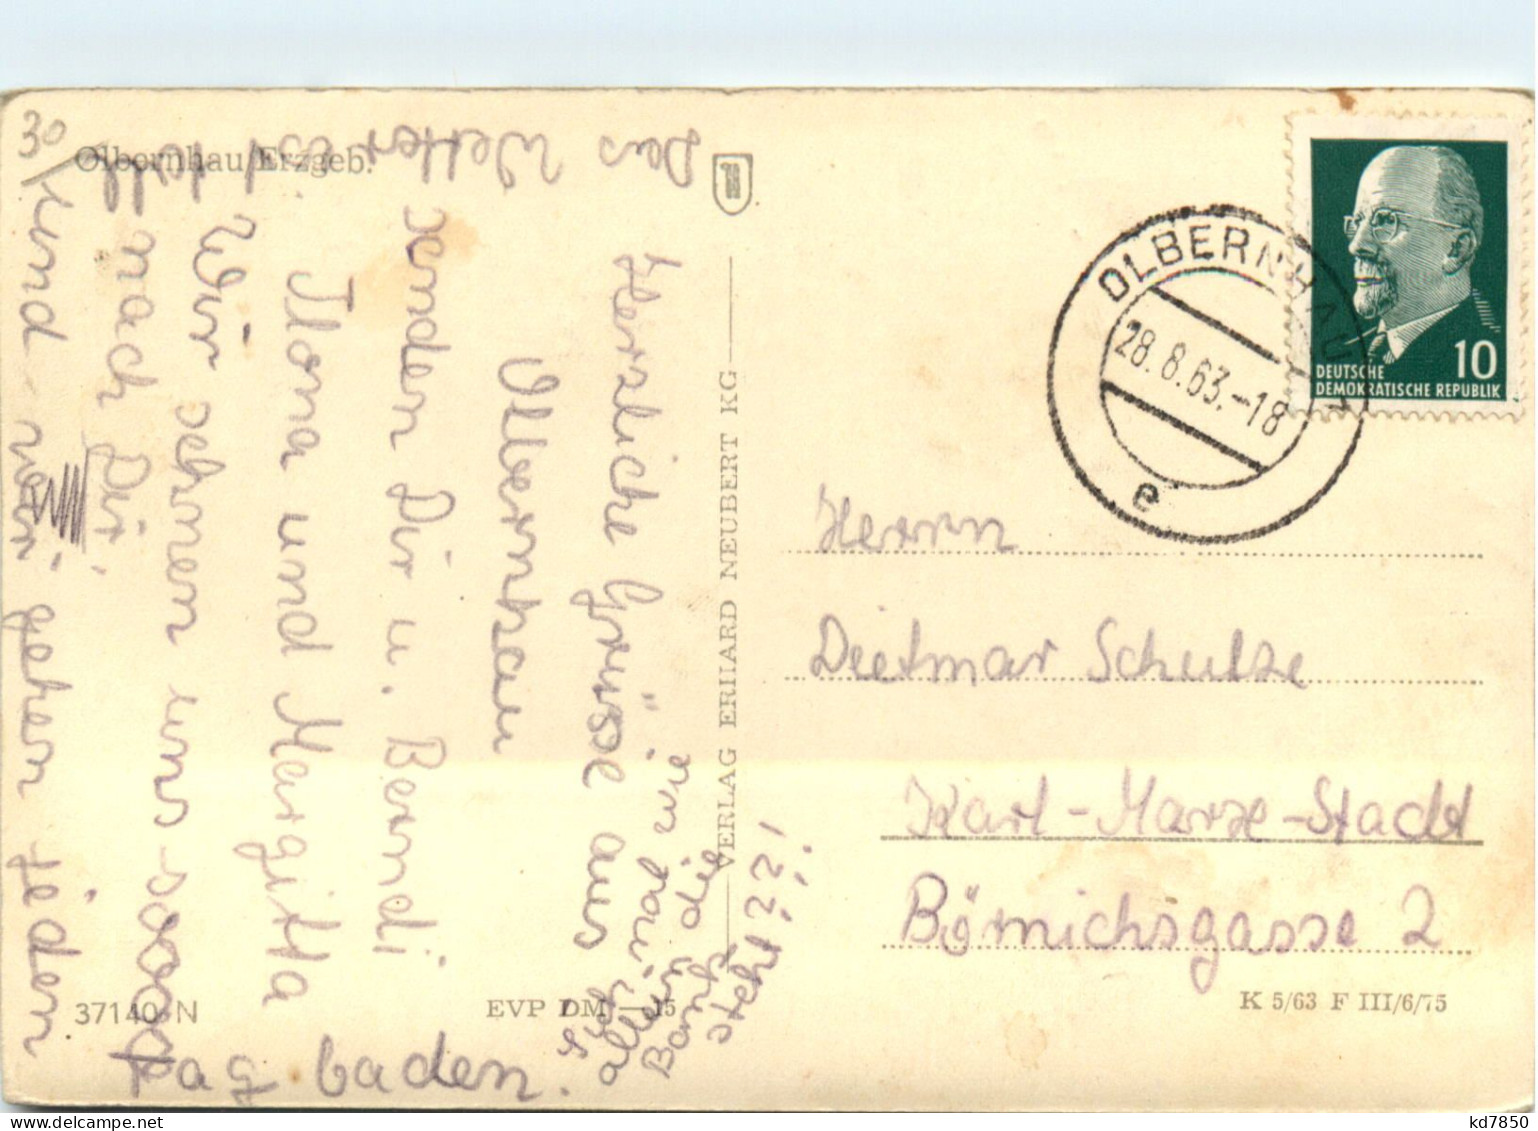 Olbernhau/Erzgeb.
30
Herzliche Grüsse aus
Olbernhau
senden Dir u. Berndi
Ilona und Margitta
Wir sehnen uns
nach Dir.
Das Wetter
ist
toll
und wir gehen jeden
Tag baden.
mal wie
allein die
Bank
steht??!
VERLAG ERHARD NEUBERT KG
37140 N
EVP DM —.15
K 5/63 F III/6/75
OLBERNHAU
28.8.63.-18
e
10
DEUTSCHE
DEMOKRATISCHE REPUBLIK
Herrn
Dietmar Schulze
Karl-Marx-Stadt
Börnichsgasse 2
kd7850